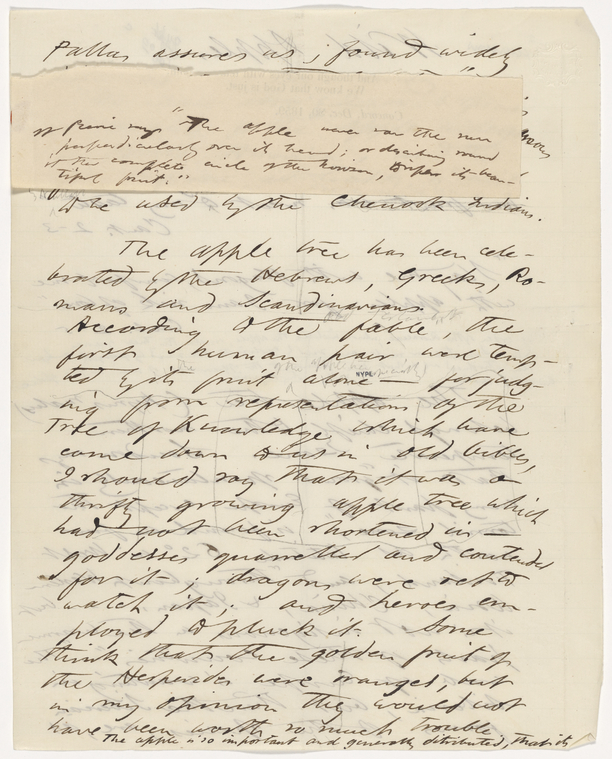 Pallas assures us; found widely
St Pierre says "The apple never saw the sun
perpendicularly over its head; or describing round
it the complete circle of the horizon, ripen its beau-
tiful fruit."
to be used by the Chenook Indians.
Cant. 2-3
The apple tree has been cele-
brated by the Hebrews, Greeks, Ro-
mans and Scandinavians.
According to the fable, the
first human pair were temp-
ted by its fruit alone — for judg-
NYPL
ing from representations of the
Tree of Knowledge which have
come down to us in old bibles,
I should say that it was a
thrifty growing apple tree which
had not been shortened in —
goddesses quarrelled and contended
for it; dragons were set to
watch it; and heroes em-
ployed to pluck it. Some
think that the golden fruit of
the Hesperides were oranges, but
in my opinion they would not
have been worth so much trouble
The apple is so important and generally distributed, that its